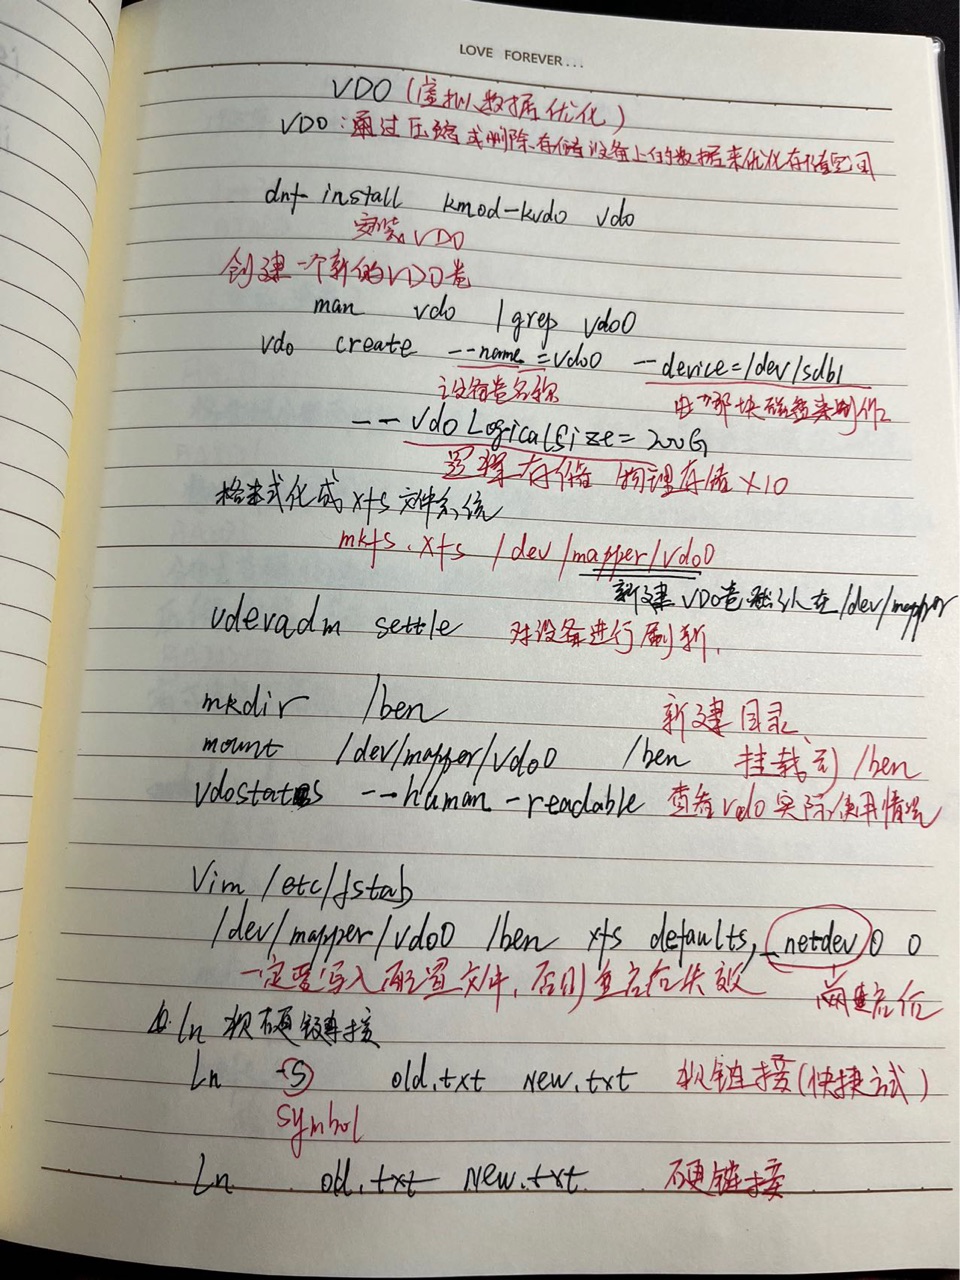 LOVE FOREVER...
VDO (虚拟数据优化)
VDO:通过压缩或删除存储设备上的数据来优化存储空间
dnf install kmod-kvdo vdo
安装VDO
创建一个新的VDO卷
man vdo | grep vdo0
vdo create --name=vdo0 --device=/dev/sdb1
设备卷名称 由哪块磁盘来制作
--vdoLogicalSize=200G
逻辑存储 物理存储×10
格式化成xfs文件系统
mkfs.xfs /dev/mapper/vdo0
新建VDO卷默认在/dev/mapper
udevadm settle 对设备进行刷新.
mkdir /ben 新建目录、
mount /dev/mapper/vdo0 /ben 挂载到/ben
vdostats --human-readable 查看vdo实际使用情况
Vim /etc/fstab
/dev/mapper/vdo0 /ben xfs defaults,_netdev 0 0
一定要写入配置文件,否则重启后失效
ln 软硬链接
Ln -s old.txt new.txt 软链接(快捷方式)
symbol
Ln old.txt new.txt 硬链接